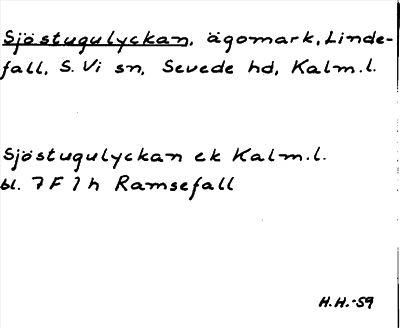 Sjöstugulyckan, ägomark, Linde-
fall, S. Vi sn, Sevede hd, Kalm.l.
Sjöstugulyckan ek Kalm.l.
bl. 7 F 1 h Ramsefall
H.H.-59